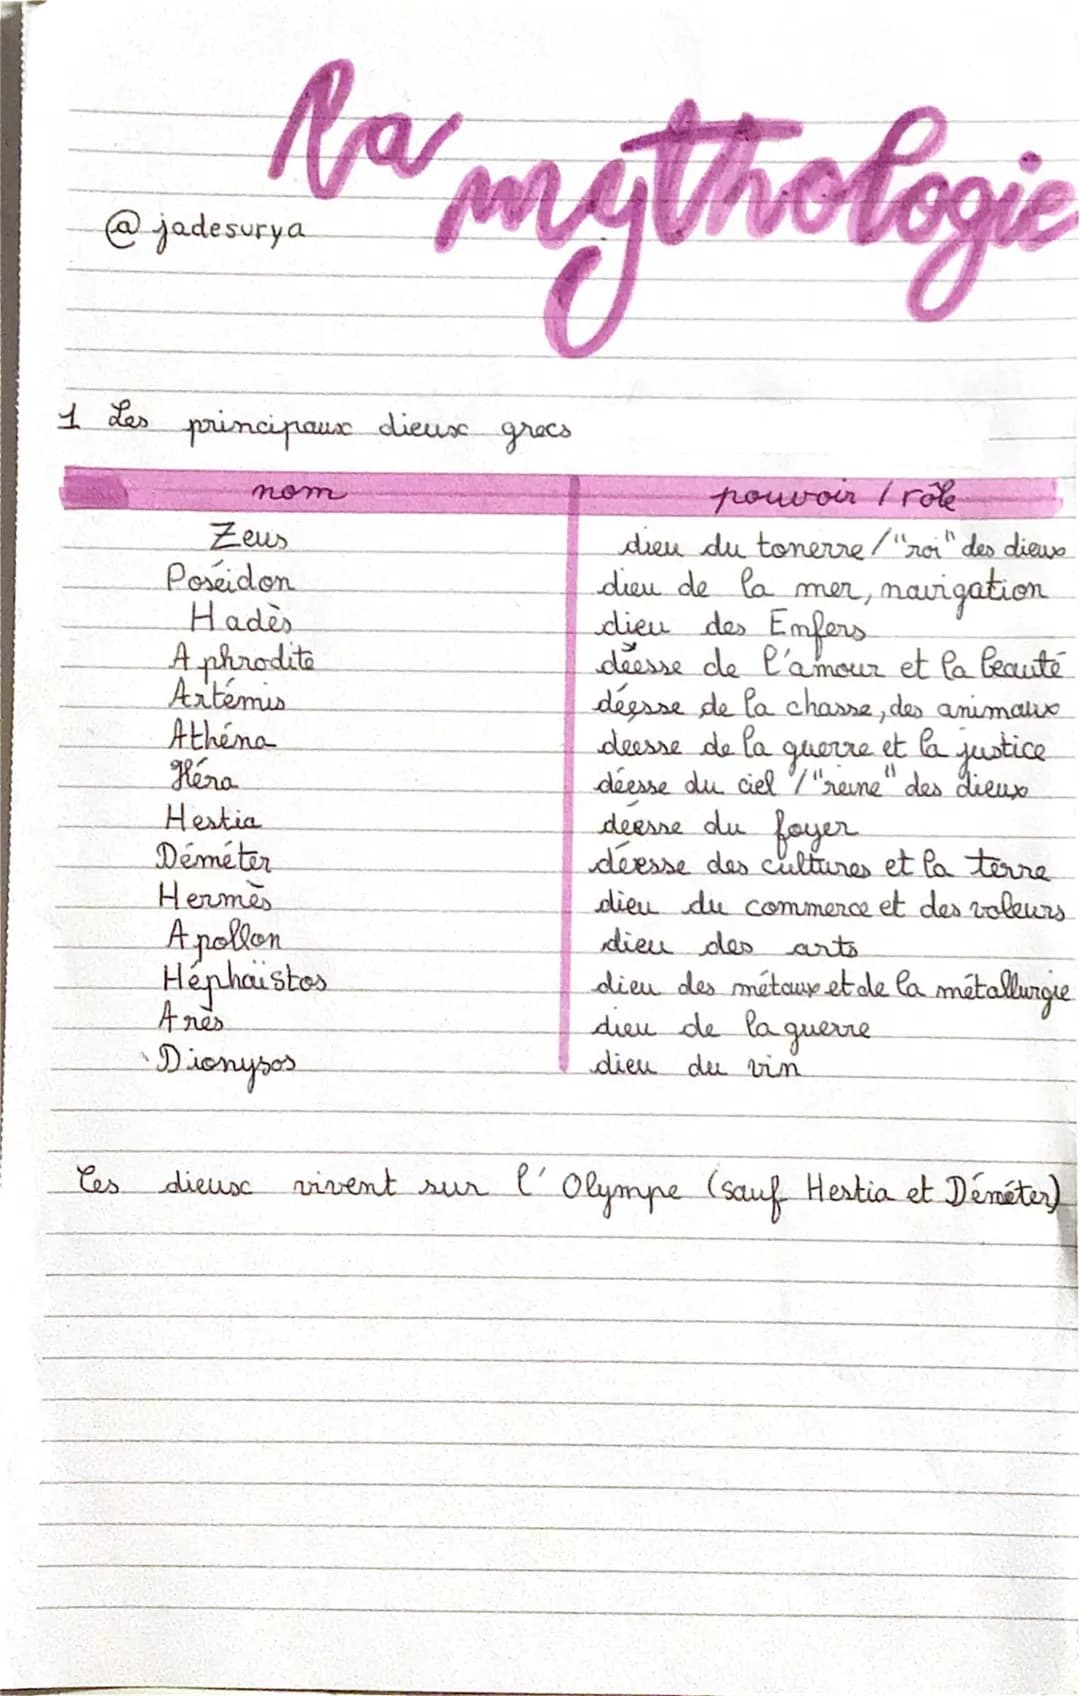 La
mythologie
@jadesurya
1 Les principaux dieux grecs
nom pouvoir / rôle
Zeus dieu du tonerre / "roi" des dieux
Poséidon dieu de la mer, navigation
Hadès dieu des Enfers
Aphrodite déesse de l'amour et la beauté
Artémis déesse de la chasse, des animaux
Athéna deesse de la guerre et la justice
Héra déesse du ciel / "reine" des dieux
Hestia déesse du foyer
Déméter déesse des cultures et la terre
Hermès dieu du commerce et des voleurs
Apollon dieu des arts
Héphaïstos dieu des métaux et de la métallurgie
Arès dieu de la guerre
Dionysos dieu du vin
Ces dieux vivent sur l'Olympe (sauf Hestia et Déméter)